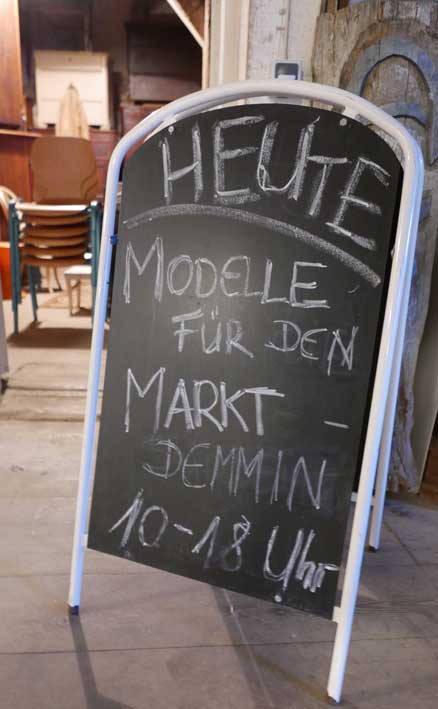 HEUTE
MODELLE
FÜR DEN
MARKT -
DEMMIN
10-18 Uhr